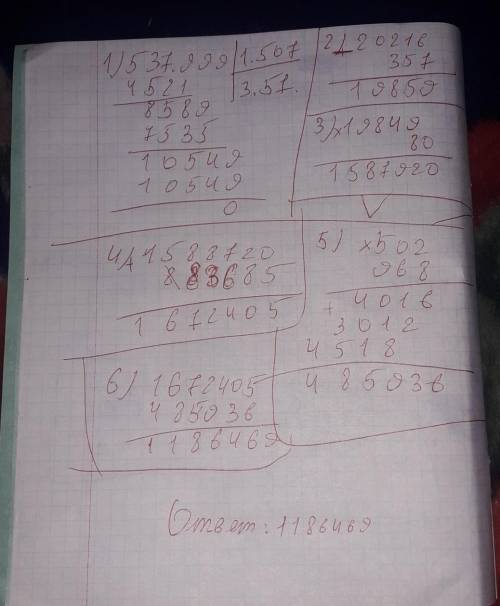 1) 537.999 | 1.507
4521 | 3.57.
8589
7535
10549
10549
0
2) 20216
357
19859
3) x19849
80
1587920
4) 1588720
83685
1672405
5) x502
968
+ 4016
3012
4518
485936
6) 1672405
485936
1186469
Ответ: 1186469